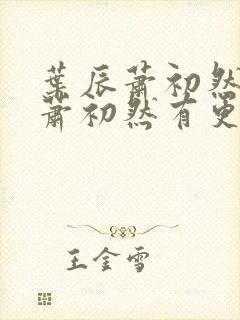 葉辰蕭初然
蕭初然有更
王金雪